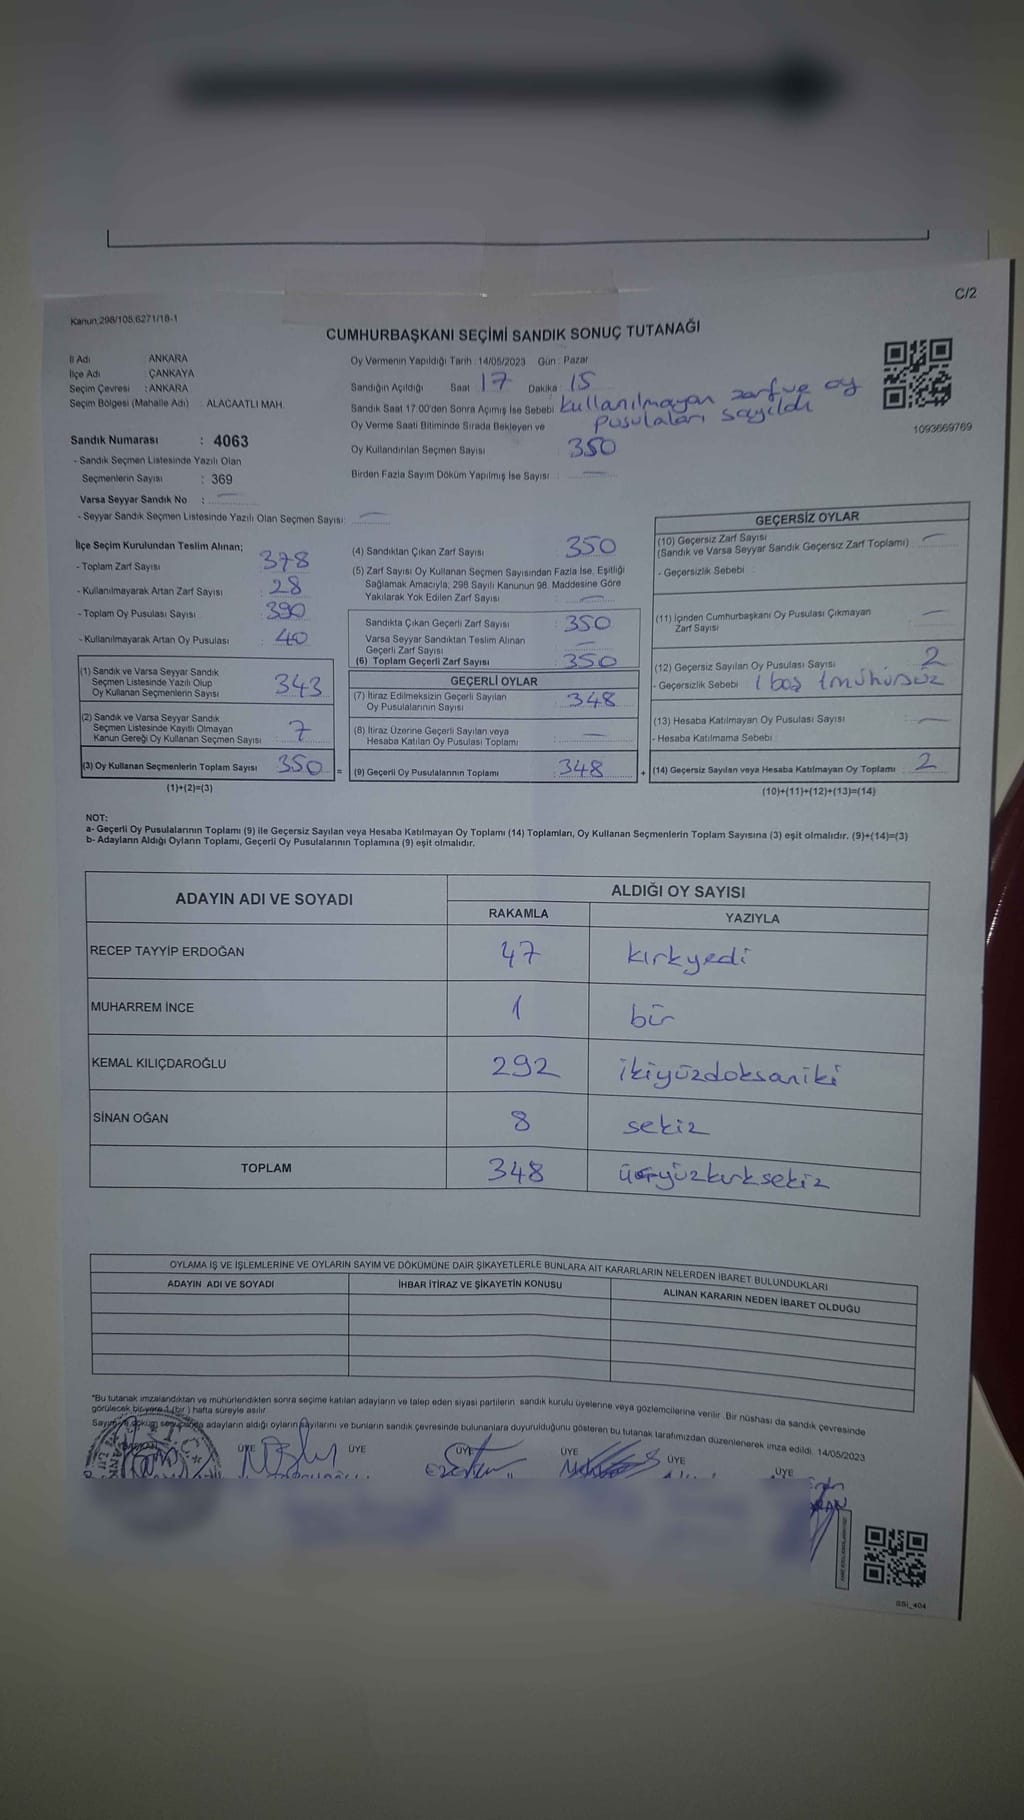 C/2
Kanun,298/105,6271/18-1
CUMHURBAŞKANI SEÇİMİ SANDIK SONUÇ TUTANAĞI
İl Adı : ANKARA
İlçe Adı : ÇANKAYA
Seçim Çevresi : ANKARA
Seçim Bölgesi (Mahalle Adı) : ALACAATLI MAH.
Sandık Numarası : 4063
- Sandık Seçmen Listesinde Yazılı Olan
Seçmenlerin Sayısı : 369
Varsa Seyyar Sandık No : —
- Seyyar Sandık Seçmen Listesinde Yazılı Olan Seçmen Sayısı: —
Oy Vermenin Yapıldığı Tarih : 14/05/2023 Gün : Pazar
Sandığın Açıldığı Saat 17 Dakika : 15
Sandık Saat 17:00'den Sonra Açımış İse Sebebi kullanılmayan zarf ve oy
pusulaları sayıldı
Oy Verme Saati Bitiminde Sırada Bekleyen ve
Oy Kullandırılan Seçmen Sayısı : 350
Birden Fazla Sayım Döküm Yapılmış İse Sayısı : —
1093669769
İlçe Seçim Kurulundan Teslim Alınan;
- Toplam Zarf Sayısı : 378
- Kullanılmayarak Artan Zarf Sayısı : 28
- Toplam Oy Pusulası Sayısı : 390
- Kullanılmayarak Artan Oy Pusulası : 40
(1) Sandık ve Varsa Seyyar Sandık
Seçmen Listesinde Yazılı Olup
Oy Kullanan Seçmenlerin Sayısı 343
(2) Sandık ve Varsa Seyyar Sandık
Seçmen Listesinde Kayıtlı Olmayan
Kanun Gereği Oy Kullanan Seçmen Sayısı 7
(3) Oy Kullanan Seçmenlerin Toplam Sayısı 350 =
(1)+(2)=(3)
(4) Sandıktan Çıkan Zarf Sayısı : 350
(5) Zarf Sayısı Oy Kullanan Seçmen Sayısından Fazla İse, Eşitliği
Sağlamak Amacıyla, 298 Sayılı Kanunun 98. Maddesine Göre
Yakılarak Yok Edilen Zarf Sayısı : —
Sandıkta Çıkan Geçerli Zarf Sayısı : 350
Varsa Seyyar Sandıktan Teslim Alınan
Geçerli Zarf Sayısı : —
(6) Toplam Geçerli Zarf Sayısı : 350
GEÇERLİ OYLAR
(7) İtiraz Edilmeksizin Geçerli Sayılan
Oy Pusulalarının Sayısı : 348
(8) İtiraz Üzerine Geçerli Sayılan veya
Hesaba Katılan Oy Pusulası Toplamı : —
(9) Geçerli Oy Pusulalarının Toplamı : 348 +
GEÇERSİZ OYLAR
(10) Geçersiz Zarf Sayısı
(Sandık ve Varsa Seyyar Sandık Geçersiz Zarf Toplamı) : —
- Geçersizlik Sebebi :
(11) İçinden Cumhurbaşkanı Oy Pusulası Çıkmayan
Zarf Sayısı : —
(12) Geçersiz Sayılan Oy Pusulası Sayısı : 2
- Geçersizlik Sebebi : 1 boş 1 mühürsüz
(13) Hesaba Katılmayan Oy Pusulası Sayısı : —
- Hesaba Katılmama Sebebi :
(14) Geçersiz Sayılan veya Hesaba Katılmayan Oy Toplamı : 2
(10)+(11)+(12)+(13)=(14)
NOT:
a- Geçerli Oy Pusulalarının Toplamı (9) ile Geçersiz Sayılan veya Hesaba Katılmayan Oy Toplamı (14) Toplamları, Oy Kullanan Seçmenlerin Toplam Sayısına (3) eşit olmalıdır. (9)+(14)=(3)
b- Adayların Aldığı Oyların Toplamı, Geçerli Oy Pusulalarının Toplamına (9) eşit olmalıdır.
ADAYIN ADI VE SOYADI ALDIĞI OY SAYISI
RAKAMLA YAZIYLA
RECEP TAYYİP ERDOĞAN 47 kırkyedi
MUHARREM İNCE 1 bir
KEMAL KILIÇDAROĞLU 292 ikiyüzdoksaniki
SİNAN OĞAN 8 sekiz
TOPLAM 348 üçyüzkırksekiz
OYLAMA İŞ VE İŞLEMLERİNE VE OYLARIN SAYIM VE DÖKÜMÜNE DAİR ŞİKAYETLERLE BUNLARA AİT KARARLARIN NELERDEN İBARET BULUNDUKLARI
ADAYIN ADI VE SOYADI İHBAR İTİRAZ VE ŞİKAYETİN KONUSU ALINAN KARARIN NEDEN İBARET OLDUĞU
*Bu tutanak imzalandıktan ve mühürlendikten sonra seçime katılan adayların ve talep eden siyasi partilerin sandık kurulu üyelerine veya gözlemcilerine verilir. Bir nüshası da sandık çevresinde
görülecek bir yere 1 (bir ) hafta süreyle asılır.
Sayım ve döküm sonucunda adayların aldığı oyların sayılarını ve bunların sandık çevresinde bulunanlara duyurulduğunu gösteren bu tutanak tarafımızdan düzenlenerek imza edildi. 14/05/2023
ÜYE ÜYE ÜYE ÜYE ÜYE ÜYE
SSI_404